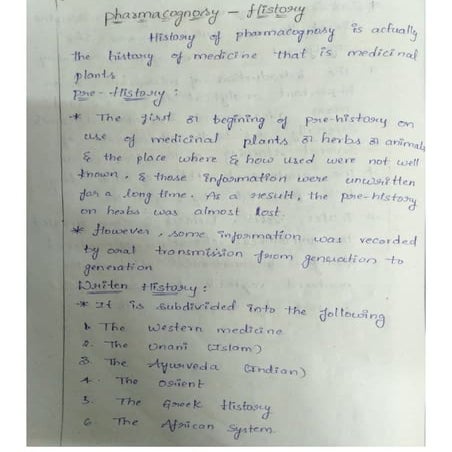 pharmacognosy - History
History of pharmacognosy is actually
the history of medicine that is medicinal
plants.
Pre-History:
* The first or begining of pre-history on
use of medicinal plants or herbs or animals
& the place where & how used were not well
known, & those information were unwritten
for a long time. As a result, the pre-history
on herbs was almost lost.
* However, some information was recorded
by oral transmission from generation to
generation
Writen History:
* It is subdivided into the following
1. The Western medicine
2. The Unani (Islam)
3. The Ayurveda (Indian)
4. The Orient
5. The Greek History
6. The African System.